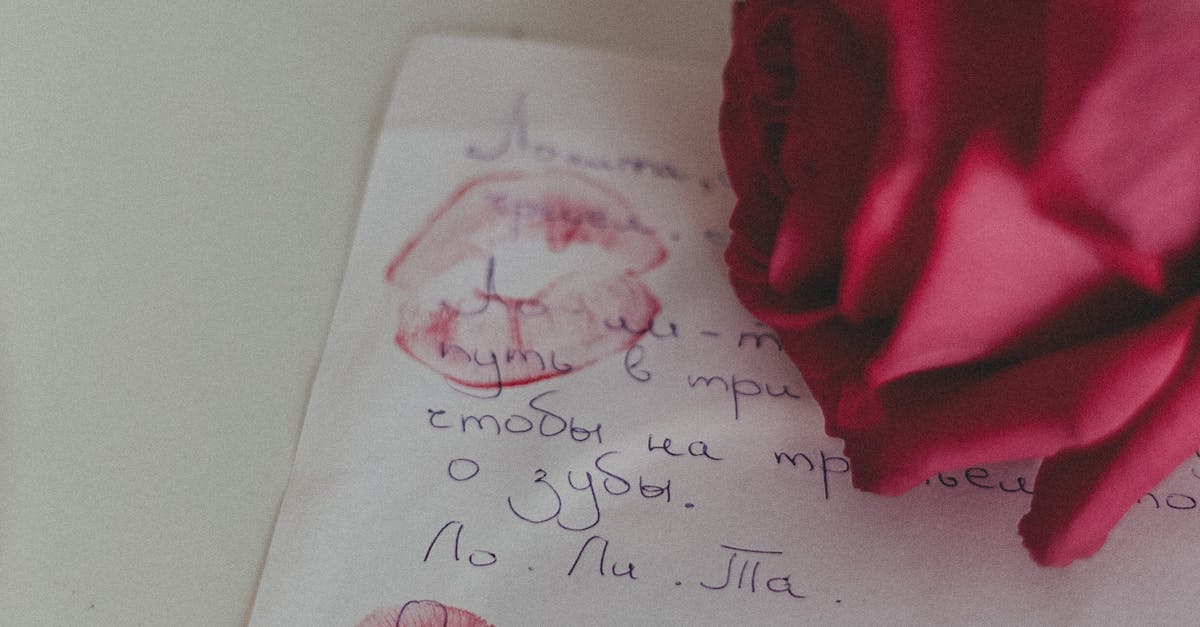 Лолита,
чресел.
Ло-ли-т
путь в три
чтобы на тр ьем то
о зубы.
Ло. Ли. Та.